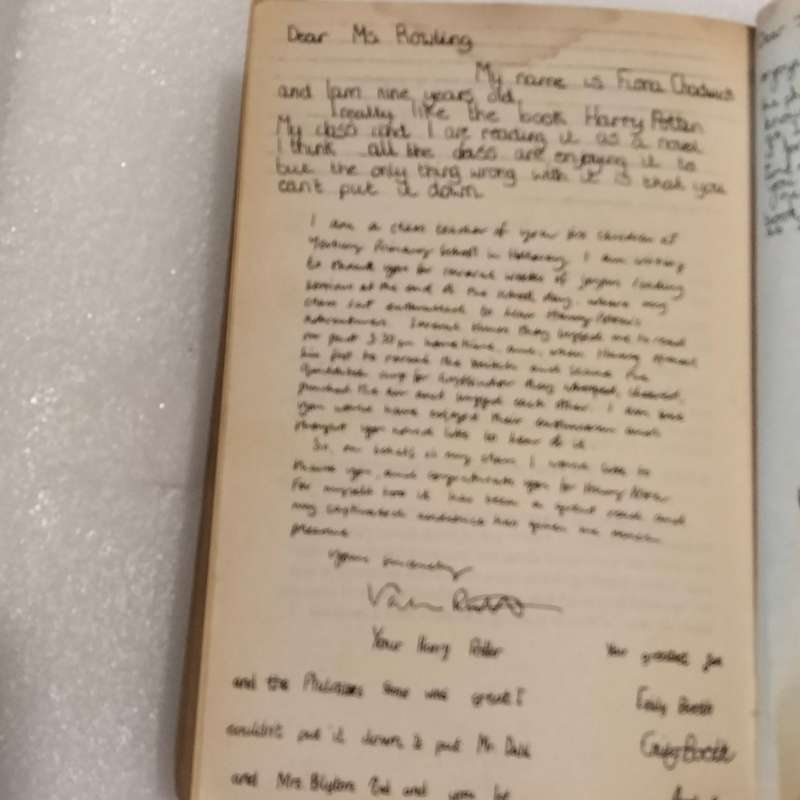 Dear Ms Rowling
My name is Fiona Chadwick
and I am nine years old.
I really like the book Harry Potter
My class and I are reading it as a novel
I think all the class are enjoying it to
but the only thing wrong with it is that you
can't put it down
I am a class teacher of year six children at
Primary School in I am writing
to thank you for several weeks of joyous reading
sessions at the end of the school day, where my
class sat enthralled to hear Harry Potter's
adventures. Several times they begged me to read
on past 3.30 pm home time, and, when Harry opened
his fist to reveal the snitch and secure the
Quidditch cup for Gryffindor they whooped, cheered,
punched the air and hugged each other. I am sure
you would have enjoyed their enthusiasm and
thought you would like to hear of it.
So, on behalf of my class I would like to
thank you, and congratulate you for Harry Potter.
For myself too it has been a great read and
my captivated audience has given me much
pleasure
Yours sincerely
Your Harry Potter
and the Philosophers Stone was great I
couldn't put it down, it put Mr Dahl
and Mrs. Blyton
Your greatest fan
Emily